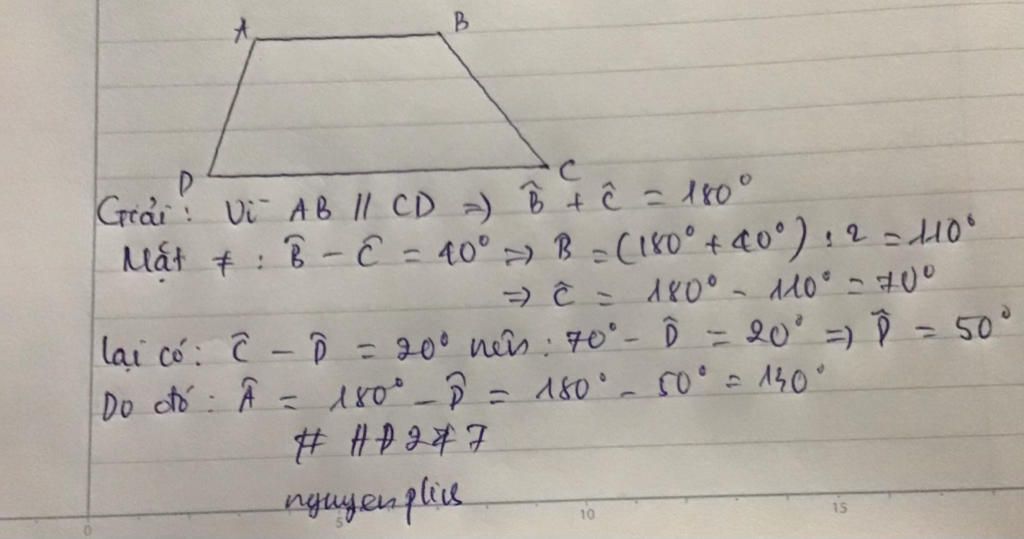 A B
D C
Giải: Vì AB // CD => B̂ + Ĉ = 180°
Mặt ≠ : B̂ - Ĉ = 40° => B = (180° + 40°) : 2 = 110°
=> Ĉ = 180° - 110° = 70°
lại có: Ĉ - D̂ = 20° nên : 70° - D̂ = 20° => D̂ = 50°
Do đó : Â = 180° - D̂ = 180° - 50° = 130°
# HD 2 ≠ 7
nguyenplus
0 5 10 15